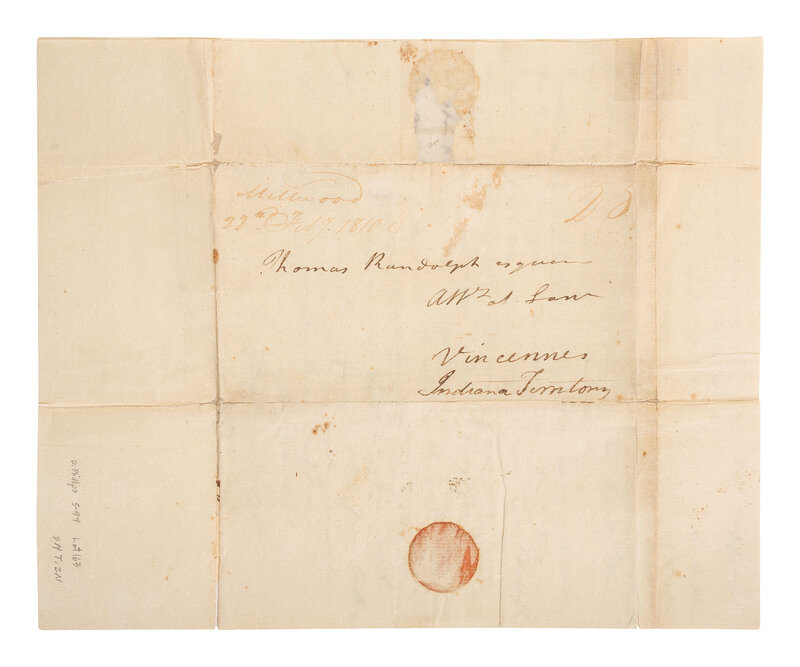 Millwood
22nd Feby. 1810
25
Thomas Randolph esquire
Atty at Law
Vincennes
Indiana Territory
D. Phillips 5-94 Lot 163